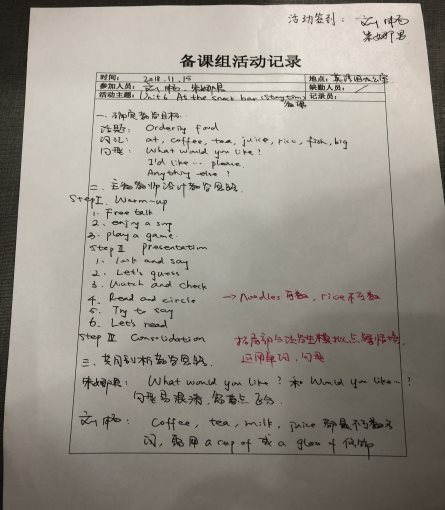 活动签到：刘畅
备课组活动记录
时间：2018.11.15 地点：英语组办公室
参加人员：刘畅、 缺勤人员：/
活动主题：Unit 6 At the snack bar (Story time) 记录员：
备课
一、确定教学目标
话题：Ordering food
词汇：at, coffee, tea, juice, rice, fish, big
句型：What would you like?
I'd like … please.
Anything else?
二、主备教师设计教学思路
Step I. Warm-up
1. Free talk
2. enjoy a song
3. play a game.
Step II presentation
1. look and say
2. Let's guess
3. Watch and check
4. Read and circle → Noodles可数, rice不可数
5. Try to say
6. Let's read
Step III Consolidation
运用单词，句型
三、共同剖析教学思路
What would you like? 和 Would you like…?
句型易混淆，
刘畅：Coffee, tea, milk, juice 都是不可数名
词，要用 a cup of 或 a glass of 修饰